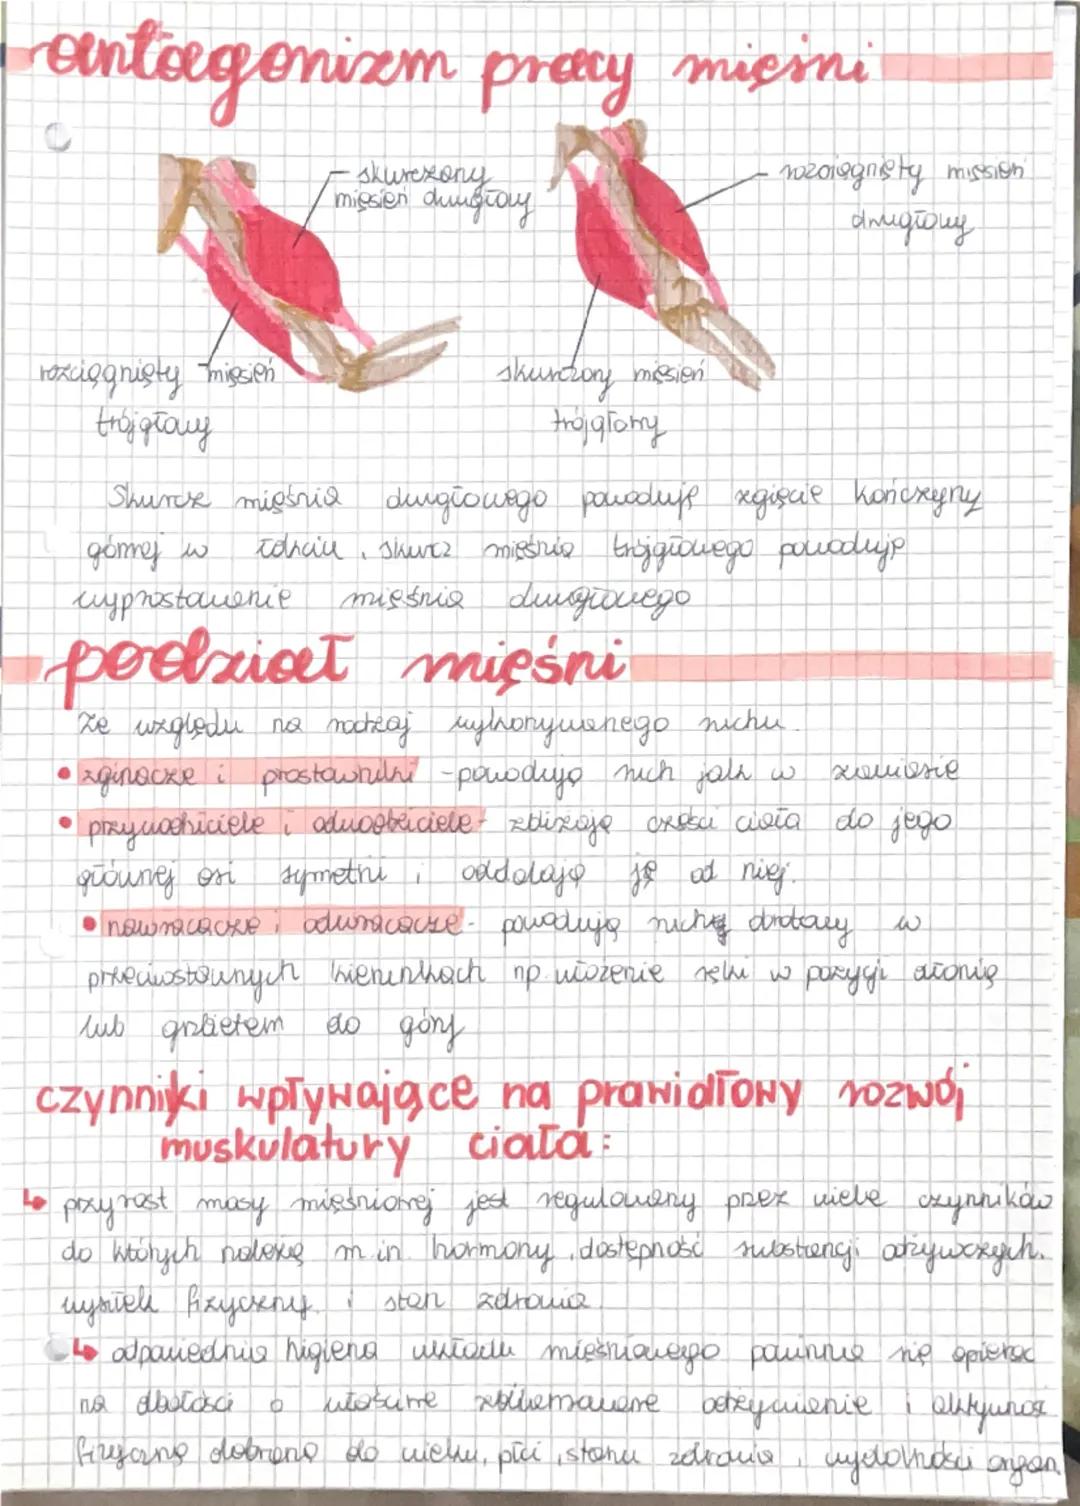 antagonizm pracy mięśni
skurczony
mięsień dwugłowy
rozciągnięty mięsień
dwugłowy
rozciągnięty mięsień
trójgłowy
skurczony mięsień
trójgłowy
Skurcz mięśnia dwugłowego powoduję zgięcie kończyny
górnej w łokciu, skurcz mięśnia trójgłowego powoduję
wyprostowanie mięśnia dwugłowego
podział mięśni
ze względu na rodzaj wykonywanego ruchu
• zginacze i prostowniki - powodują ruch jak w zawiasie
• przywodziciele i odwodziciele - zbliżają części ciała do jego
głównej osi symetrii i oddalają ję od niej.
• nawracacze i odwracacze - powodują ruchy obrotowy w
przeciwstawnych kierunkach np. ułożenie ręki w pozycji dłonią
lub grzbietem do góry
czynniki wpływające na prawidłowy rozwój
muskulatury ciała:
↳ przyrost masy mięśniowej jest regulowany przez wiele czynników
do których należą m.in. hormony, dostępność substancji odżywczych,
wysiłek fizyczny i stan zdrowia.
↳ odpowiednia higiena układu mięśniowego powinna się opierać
na dbałości o właściwe zbilansowane odżywianie i aktywność
fizyczną dobraną do wieku, płci, stanu zdrowia, wydolności organ.